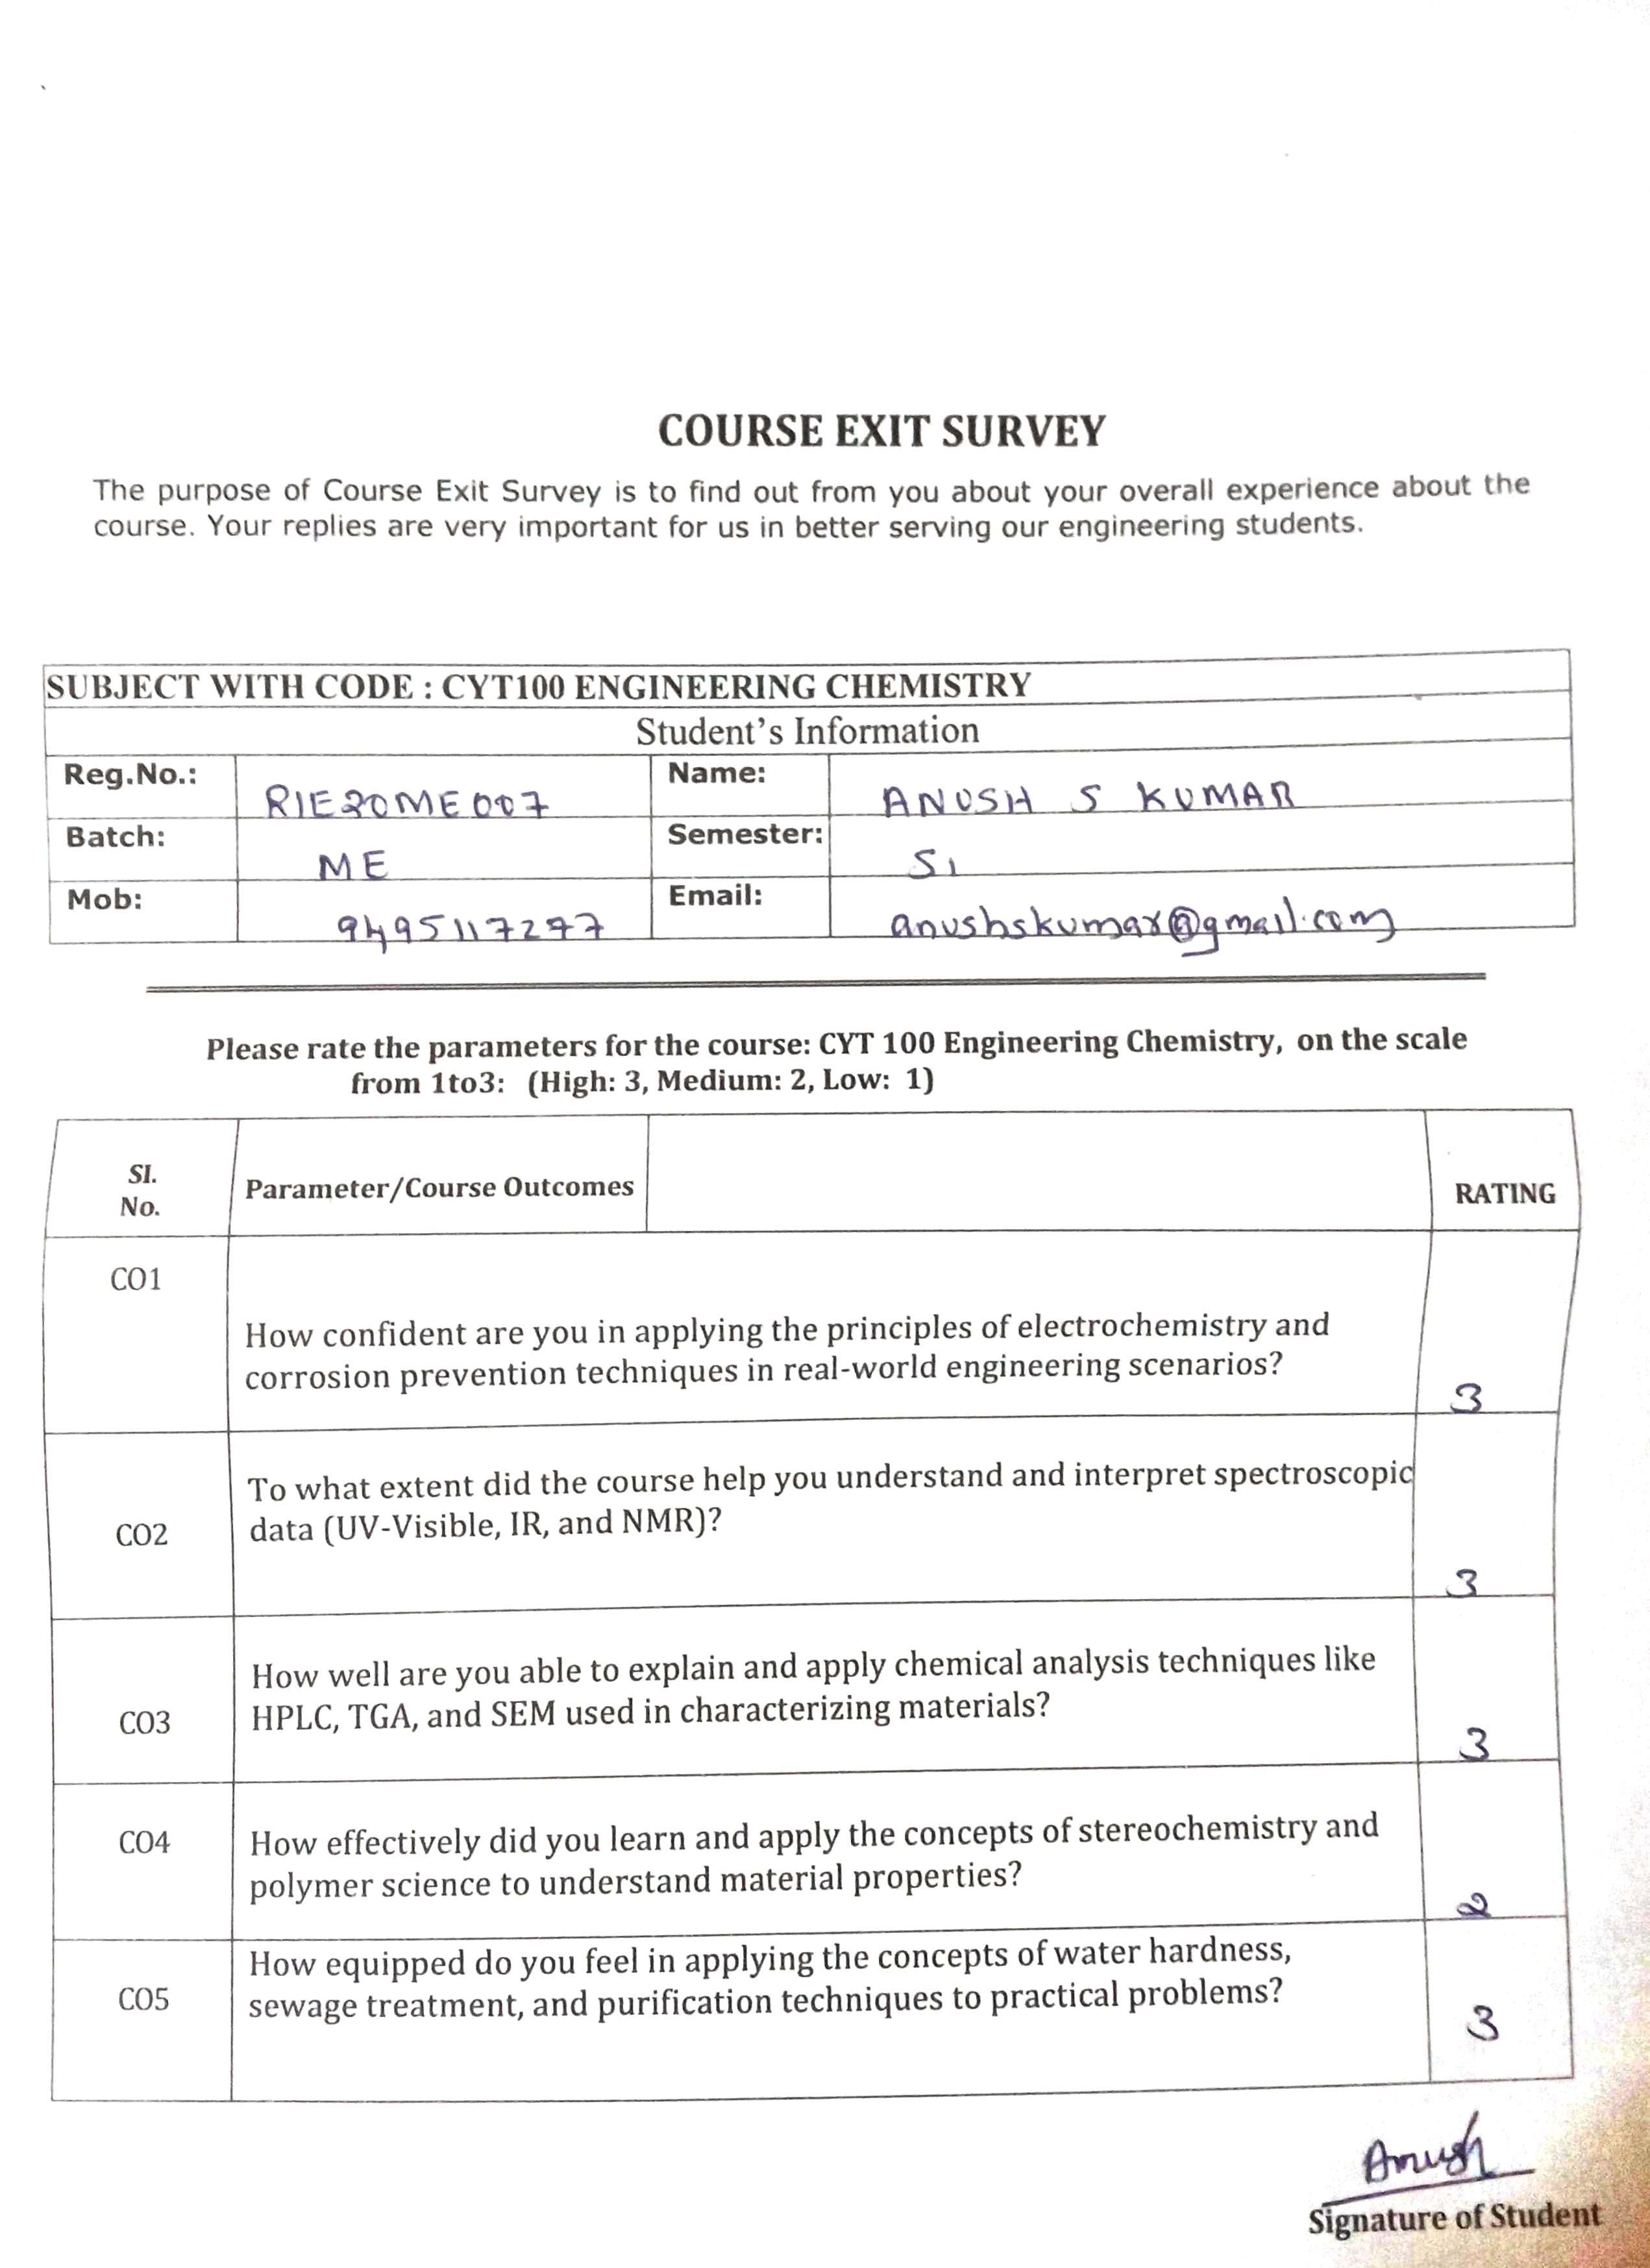 COURSE EXIT SURVEY
The purpose of Course Exit Survey is to find out from you about your overall experience about the
course. Your replies are very important for us in better serving our engineering students.
SUBJECT WITH CODE : CYT100 ENGINEERING CHEMISTRY
Student's Information
Reg.No.: RIE20ME007 Name: ANUSH S KUMAR
Batch: ME Semester: S1
Mob: 9495117277 Email: anushskumar@gmail.com
Please rate the parameters for the course: CYT 100 Engineering Chemistry, on the scale
from 1to3: (High: 3, Medium: 2, Low: 1)
Sl.
No.
Parameter/Course Outcomes
RATING
CO1
How confident are you in applying the principles of electrochemistry and
corrosion prevention techniques in real-world engineering scenarios?
3
To what extent did the course help you understand and interpret spectroscopic
CO2 data (UV-Visible, IR, and NMR)?
3
How well are you able to explain and apply chemical analysis techniques like
CO3 HPLC, TGA, and SEM used in characterizing materials?
3
CO4 How effectively did you learn and apply the concepts of stereochemistry and
polymer science to understand material properties?
2
How equipped do you feel in applying the concepts of water hardness,
CO5 sewage treatment, and purification techniques to practical problems?
3
Anush
Signature of Student